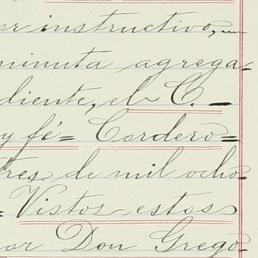 or instructivo,
minuta agrega-
diente, el C. —
y fé = Cordero =
tres de mil ocho
= Vistos estos
or Don Grego-